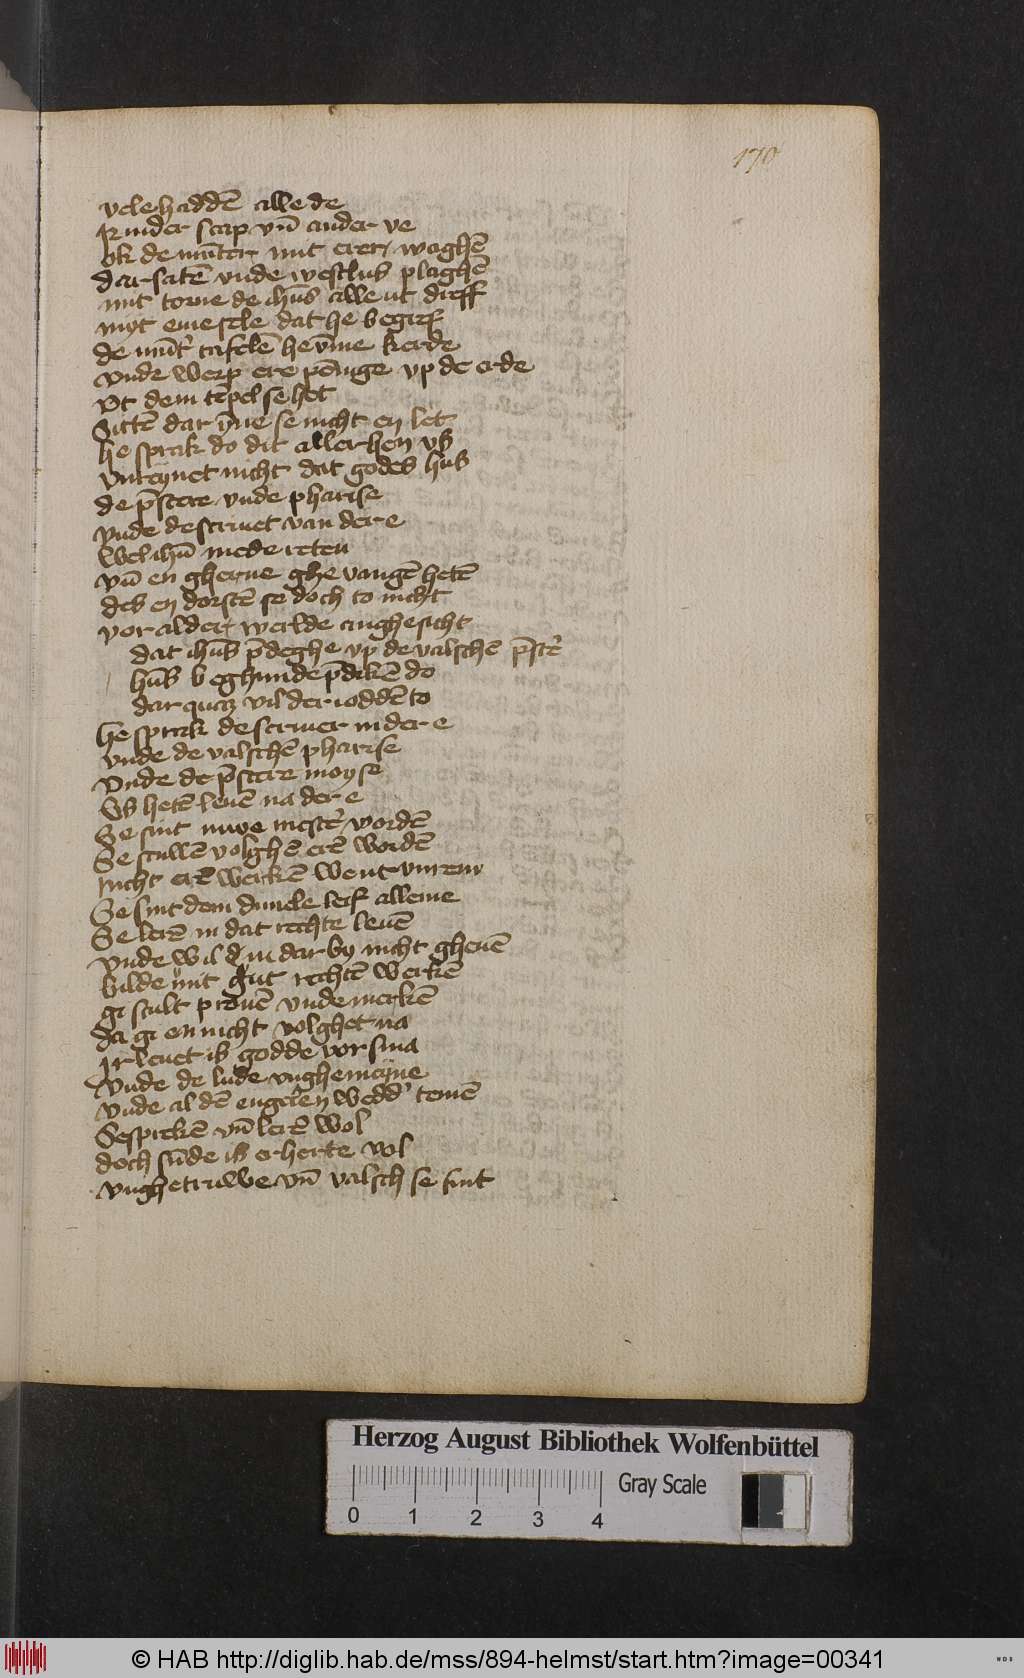 170
vele haddē alle de
Rinder scap vn̄ ander ve
ok de mūter mit erer waghē
dar satē vnde westlus plaghē
mit torne de ihūs alle ut dreff
myt eme sele dat he begref
de mūt' tafelē he v̄me kerde
vnde werp ere pēnige vp de erde
Vt dem tēpel se het
Sittē dar ȳne se nicht en let
he sprak do dit aller hen vs
vnreynet nicht dat godes hus
de p̄stere vnde pharise
vnde de scriuet van der e
wel ihū mede reten
vn̄ en gherne ghe vangē hetē
des en dorstē se doch to nicht
vor alder werlde anghesicht
dat ihūs p̄deghe vp de valschē p̄ste'
hūs beghunde p̄dikē do
dar quā vil der ioddē to
He sprak de scriuer in der e
vnde de valschē pharise
Vnde de p̄stere moyse
Vs hetē leuē na der e
Se sint nuwe meste' wordē
Se scullē volghē erē wordē
nicht erē werkē went vnrein
Se sint dem duuele leif alleine
Se lerē in dat rechte leuē
Vnde wil dar by nicht gheuē
bilde mit gut rechtē werkē
gi scult prouē vnde merkē
da gi en nicht volghet na
Ir leuet is godde vorsma
Vnde de lude vnghemeyne
Vnde al dē engelen wedd' temē
Se sprekē vn̄ lerē wol
doch sūde is er herte vol
vnghetruwe vn̄ valsch se sint
Herzog August Bibliothek Wolfenbüttel
Gray Scale
0 1 2 3 4
© HAB http://diglib.hab.de/mss/894-helmst/start.htm?image=00341